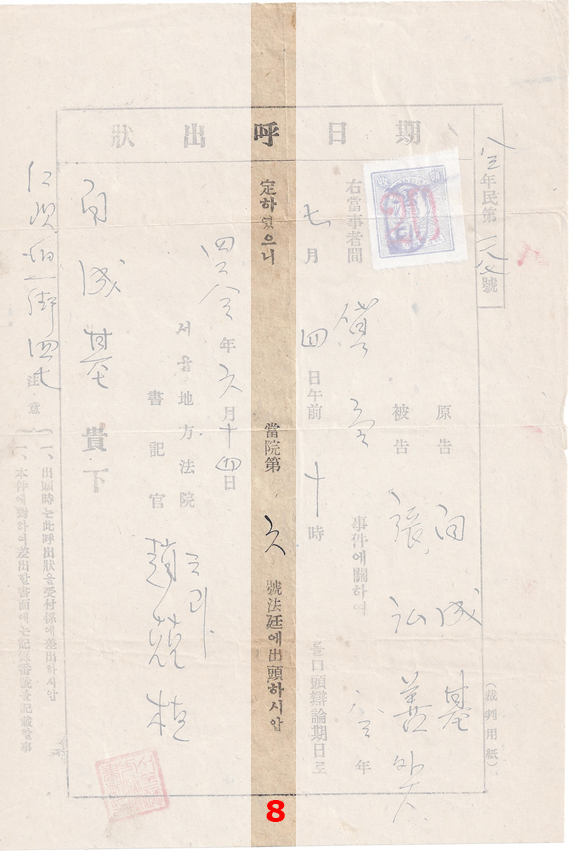 期日呼出狀
八三年民第 號
(裁判用紙)
原告 白成基
被告 張弘善外六
右當事者間 事件에關하여 八三年
七月四日午前十時 를口頭辯論期日로
定하였으니 當院第六號法廷에出頭하시압
年六月十四日
서울地方法院
書記官 趙 植
白成基 貴下
一街四七
注意
一、出頭時는此呼出狀을受付係에差出하시압
一、本件에對하여差出할書面에는記錄番號를記載할事
8